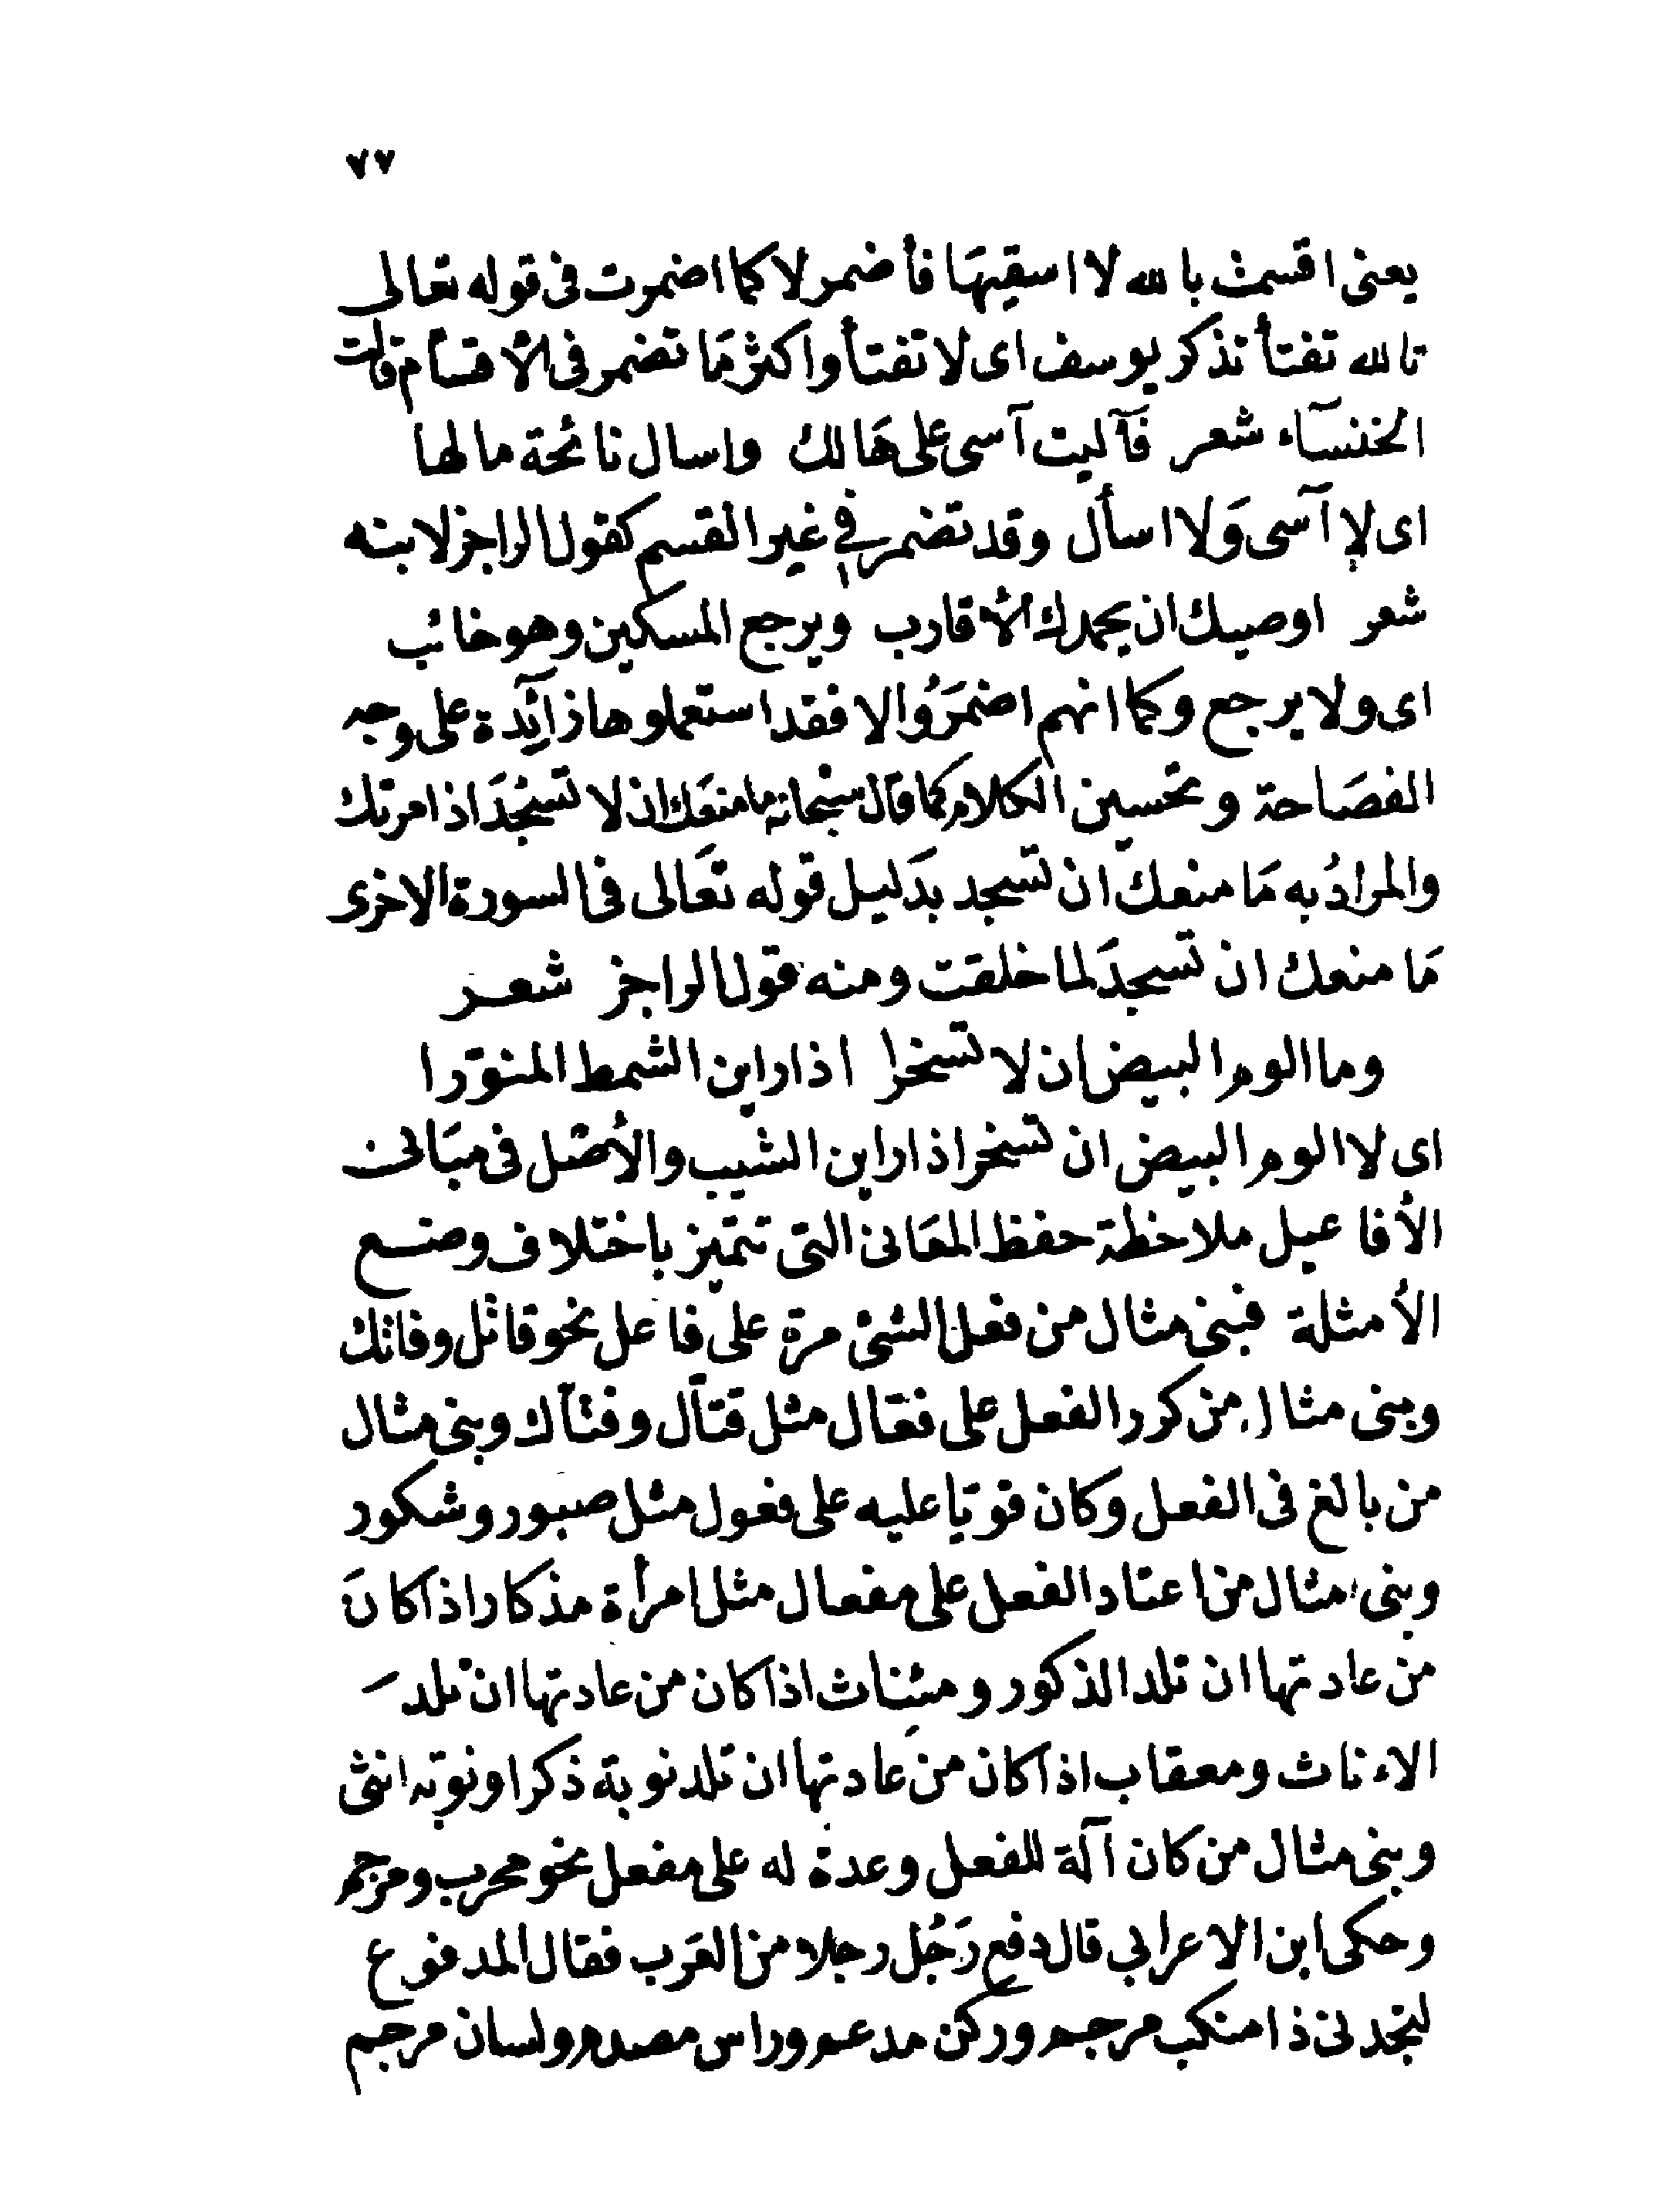 ٧٧
يعنى اقسمت بالله لا اسقيهَا فأضمر لا كما اضمرت فى قوله تعالى
تالله تفتأ تذكر يوسف اى لا تفتأ واكثر مَا تضمر فى الأقسام قالت
الخنسآء شعر فآليت آسى على هَالك واسال نائحة مالها
اى لا آسى وَلا اسأل وقد تضمر في غير القسم كقول الراجز لابنه
شعر اوصيك ان يحمدك الأقارب ويرجع المسكين وهو خائب
اى ولا يرجع وكما انهم اضمَرُوا لا فقد استعملوها زآئدة على وجه
الفصَاحة وتحسين الكلام كما قال سبحانه ما منعَك ان لا تسجُدَ اذ امرتك
والمرادُ به مَا منعك ان تسجد بدَليل قوله تعَالى فى السورة الاخرى
مَا منعك ان تسجدَ لما خلقت ومنه قول الراجز شعر
وما الوم البيض ان لا تسخرا اذا راين الشمط المنوّرا
اى لا الوم البيض ان تسخر اذا راين الشيب والأصل فى مبَانى
الأفاعيل ملاحظة حفظ المعَانى التى تتميز باختلاف وضع
الأمثلة فبنى مثال من فعل الشئ مرة على فاعل نحو قاتل وفاتك
وبنى مثال من كرر الفعل على فعّال مثل قتاّل وفتاّك وبنى مثال
من بالغ فى الفعل وكان قويّا عليه على فعول مثل صبور وشكور
وبنى مثال من اعتاد الفعل على مفعال مثل امرأة مذكار اذا كانَ
من عادتها ان تلد الذكور ومئناث اذا كان من عادتها ان تلد
الاءناث ومعقاب اذا كان من عادتها ان تلد نوبة ذكرا ونوبة انثى
وبنى مثال من كان آلة للفعل وعدة له على مفعل نحو محرب ومرجم
وحكى ابن الاعرابي قال دفع رَجُل رجلا من العَرب فقال المدفوع
لتجدنى ذا منكب مرجم وركن مدعم وراس مصدم ولسان مرجم